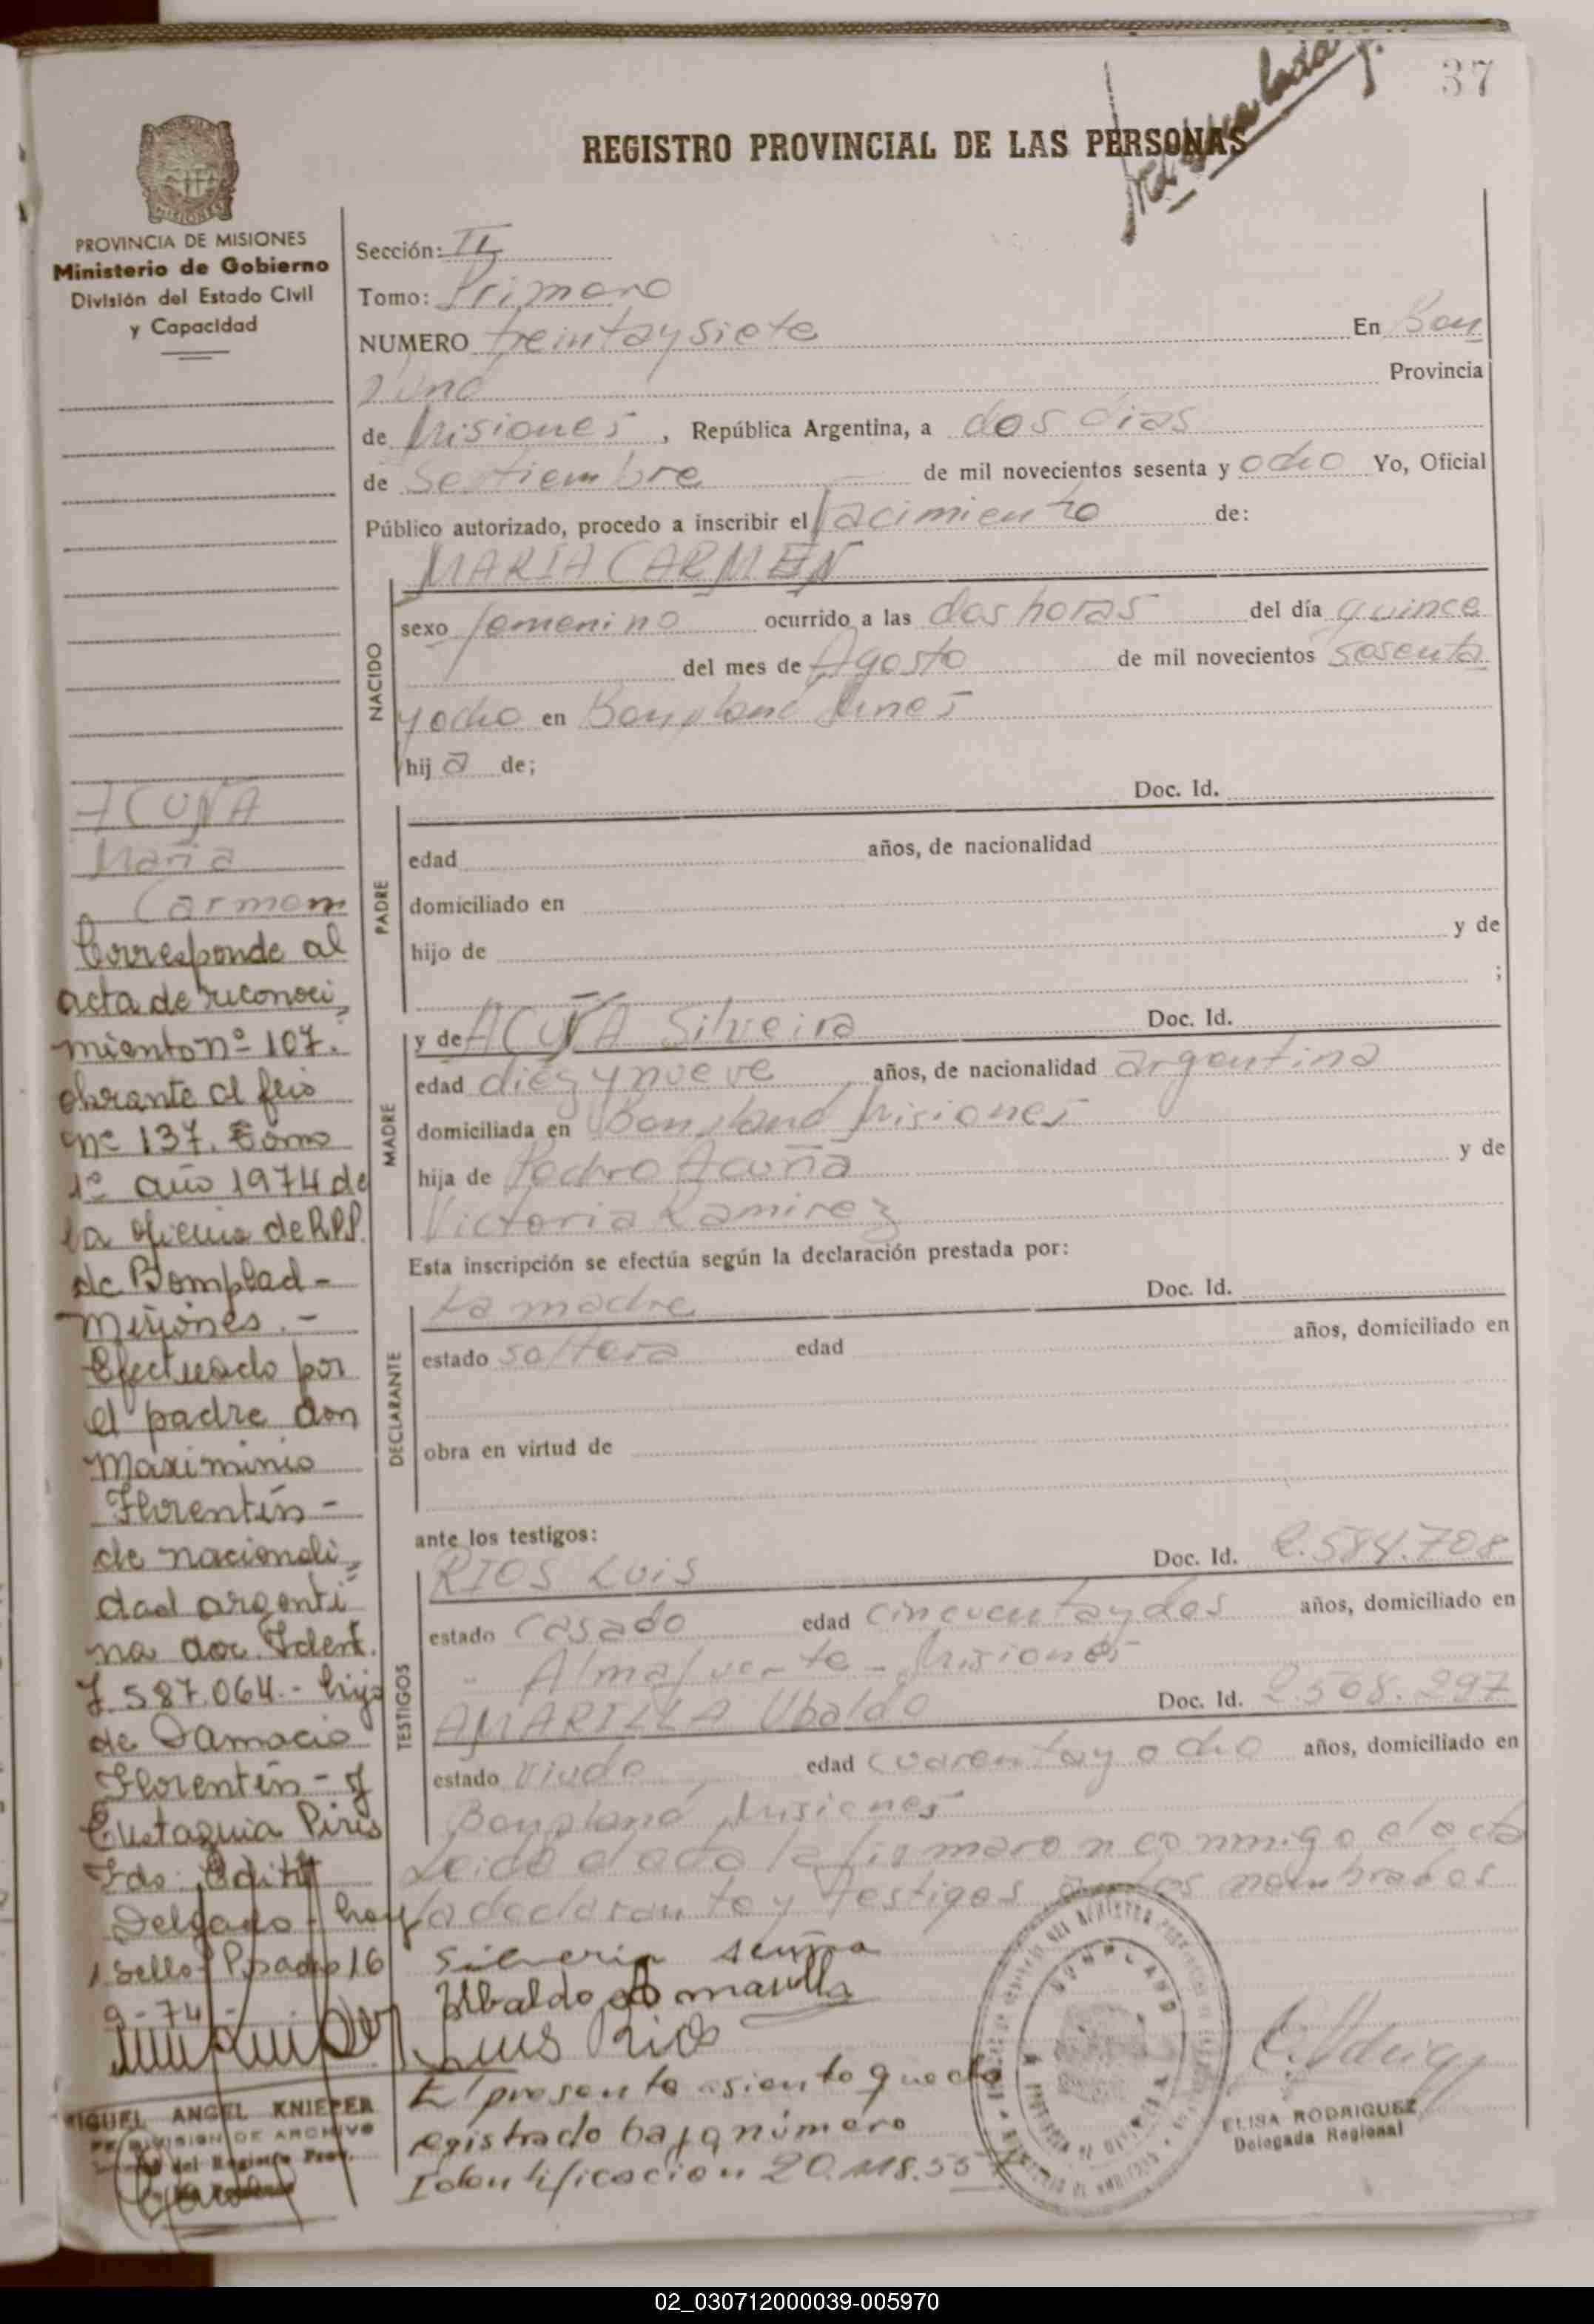 37
REGISTRO PROVINCIAL DE LAS PERSONAS
MISIONES
PROVINCIA DE MISIONES
Ministerio de Gobierno
División del Estado Civil
y Capacidad
Sección: II
Tomo: Primero
NUMERO treintaysiete En Bon
pland Provincia
de Misiones, República Argentina, a dos dias
de Septiembre de mil novecientos sesenta y ocho Yo, Oficial
Público autorizado, procedo a inscribir el Nacimiento de:
MARIA CARMEN
NACIDO
sexo femenino ocurrido a las dos horas del día quince
del mes de Agosto de mil novecientos sesenta
yocho en Bonpland Mnes
hij a de;
Doc. Id.
PADRE
edad años, de nacionalidad
domiciliado en
hijo de y de
;
MADRE
y de ACUÑA Silveira Doc. Id.
edad diez y nueve años, de nacionalidad argentina
domiciliada en Bonpland Misiones
hija de Pedro Acuña y de
Victoria Ramirez
Esta inscripción se efectúa según la declaración prestada por:
DECLARANTE
La madre Doc. Id.
estado soltera edad años, domiciliado en
obra en virtud de
ante los testigos:
TESTIGOS
RIOS Luis Doc. Id. 2.584.708
estado casado edad cincuentaydos años, domiciliado en
Almafuerte - Misiones
AMARILLA Ubaldo Doc. Id. 2.568.297
estado viudo edad cuarentay ocho años, domiciliado en
Bonpland Misiones
Leida el acta la firmaron conmigo el acta
la declarante y testigos nombrados
Silveria Acuña
Ubaldo Amarilla
Luis Rios
El presente asiento queda
registrado bajo número
Identificación 20.118.55
BONPLAND
ELISA RODRIGUEZ
Delegada Regional
ACUÑA
Maria
Carmen
Corresponde al
acta de reconoci
miento nº 107.
obrante al folio
nº 137. Tomo
1º año 1974 de
la oficina de R.P.P.
de Bomplad -
Misiones. -
Efectuado por
el padre don
Maximinio
Florentín -
de nacionali
dad argenti
na doc. Ident.
7.587.064.- hijo
de Damacio
Florentín - y
Eustaquia Piris
Fdo: Edith
Delgado - hay
1 sello - Posadas 16
9-74 -
MIGUEL ANGEL KNIEPER
DIVISION DE ARCHIVO
del Registro Prov.
02_030712000039-005970